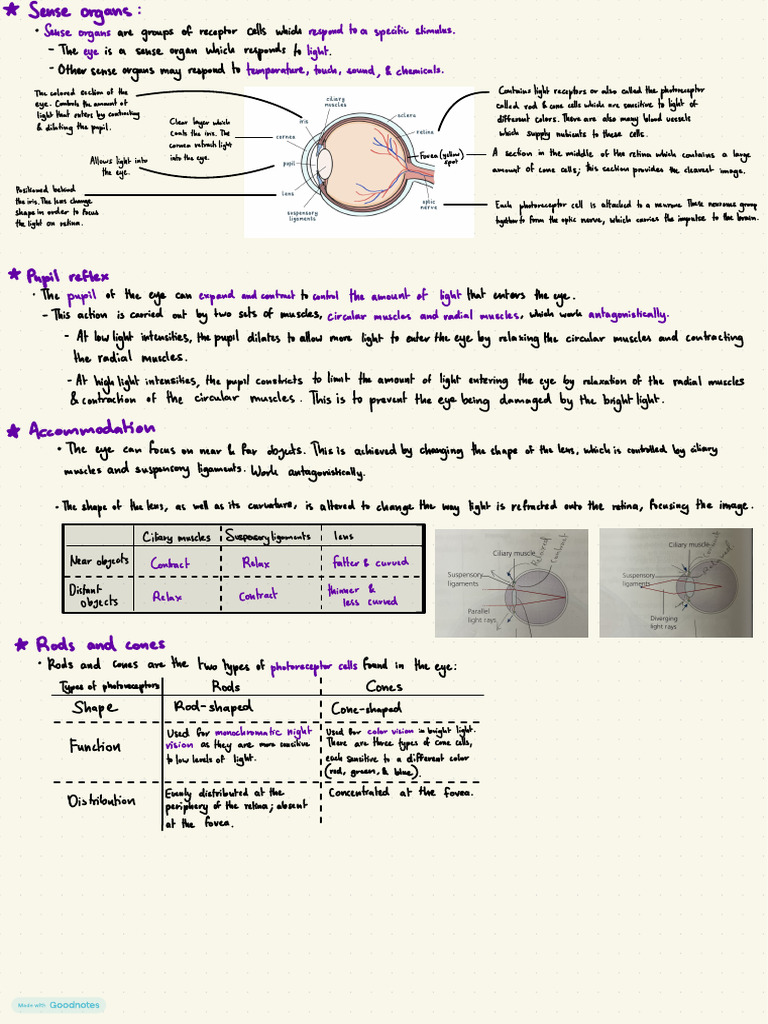 * Sense organs:
• Sense organs are groups of receptor cells which respond to a specific stimulus.
- The eye is a sense organ which responds to light.
- Other sense organs may respond to temperature, touch, sound, & chemicals.
The colored section of the
eye. Controls the amount of
light that enters by contracting
& dilating the pupil.
Clear layer which
coats the iris. The
cornea refracts light
into the eye.
Allows light into
the eye.
Positioned behind
the iris. The lens change
shape in order to focus
the light on retina.
ciliary
muscles
iris
cornea
pupil
lens
suspensory
ligaments
sclera
retina
Fovea (yellow)
spot
optic
nerve
Contains light receptors or also called the photoreceptor
called rod & cone cells which are sensitive to light of
different colors. There are also many blood vessels
which supply nutrients to these cells.
A section in the middle of the retina which contains a large
amount of cone cells; this section provides the clearest image.
Each photoreceptor cell is attached to a neurone. These neurones group
together to form the optic nerve, which carries the impulse to the brain.
* Pupil reflex
• The pupil of the eye can expand and contract to control the amount of light that enters the eye.
- This action is carried out by two sets of muscles, circular muscles and radial muscles, which work antagonistically.
- At low light intensities, the pupil dilates to allow more light to enter the eye by relaxing the circular muscles and contracting
the radial muscles.
- At high light intensities, the pupil constricts to limit the amount of light entering the eye by relaxation of the radial muscles
& contraction of the circular muscles. This is to prevent the eye being damaged by the bright light.
* Accommodation
• The eye can focus on near & far objects. This is achieved by changing the shape of the lens, which is controlled by ciliary
muscles and suspensory ligaments. Work antagonistically.
• The shape of the lens, as well as its curvature, is altered to change the way light is refracted onto the retina, focusing the image.
Ciliary muscles Suspensory ligaments lens
Near objects Contract Relax fatter & curved
Distant
objects Relax Contract thinner &
less curved
Ciliary muscle
Relaxed
Contract
Suspensory
ligaments
Parallel
light rays
Ciliary muscle
Contract
Relaxed
Suspensory
ligaments
Diverging
light rays
* Rods and cones
• Rods and Cones are the two types of photoreceptor cells found in the eye:
Types of photoreceptors Rods Cones
Shape Rod-shaped Cone-shaped
Function
Used for monochromatic night
vision as they are more sensitive
to low levels of light.
Used for color vision in bright light.
There are three types of cone cells,
each sensitive to a different color
(red, green, & blue).
Distribution
Evenly distributed at the
periphery of the retina; absent
at the fovea.
Concentrated at the fovea.
Made with Goodnotes